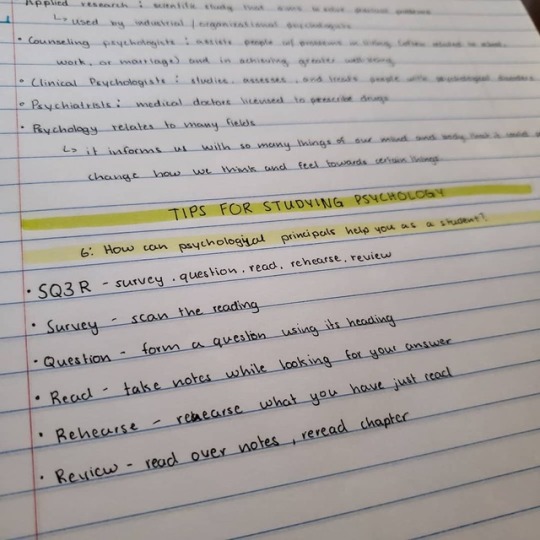 Applied research : scientific study that aims to solve practical problems
↳ used by industrial / organizational psychologists
• Counseling psychologists : assists people w/ problems in living (often related to school,
work, or marriage) and in achieving greater well-being
• Clinical Psychologists : studies, assesses, and treats people with psychological disorders
• Psychiatrists : medical doctors licensed to prescribe drugs
• Psychology relates to many fields
↳ it informs us with so many things of our mind and body
change how we think and feel towards certain things
TIPS FOR STUDYING PSYCHOLOGY
6: How can psychological principals help you as a student?
• SQ3R - survey, question, read, rehearse, review
• Survey - scan the reading
• Question - form a question using its heading
• Read - take notes while looking for your answer
• Rehearse - rehearse what you have just read
• Review - read over notes, reread chapter